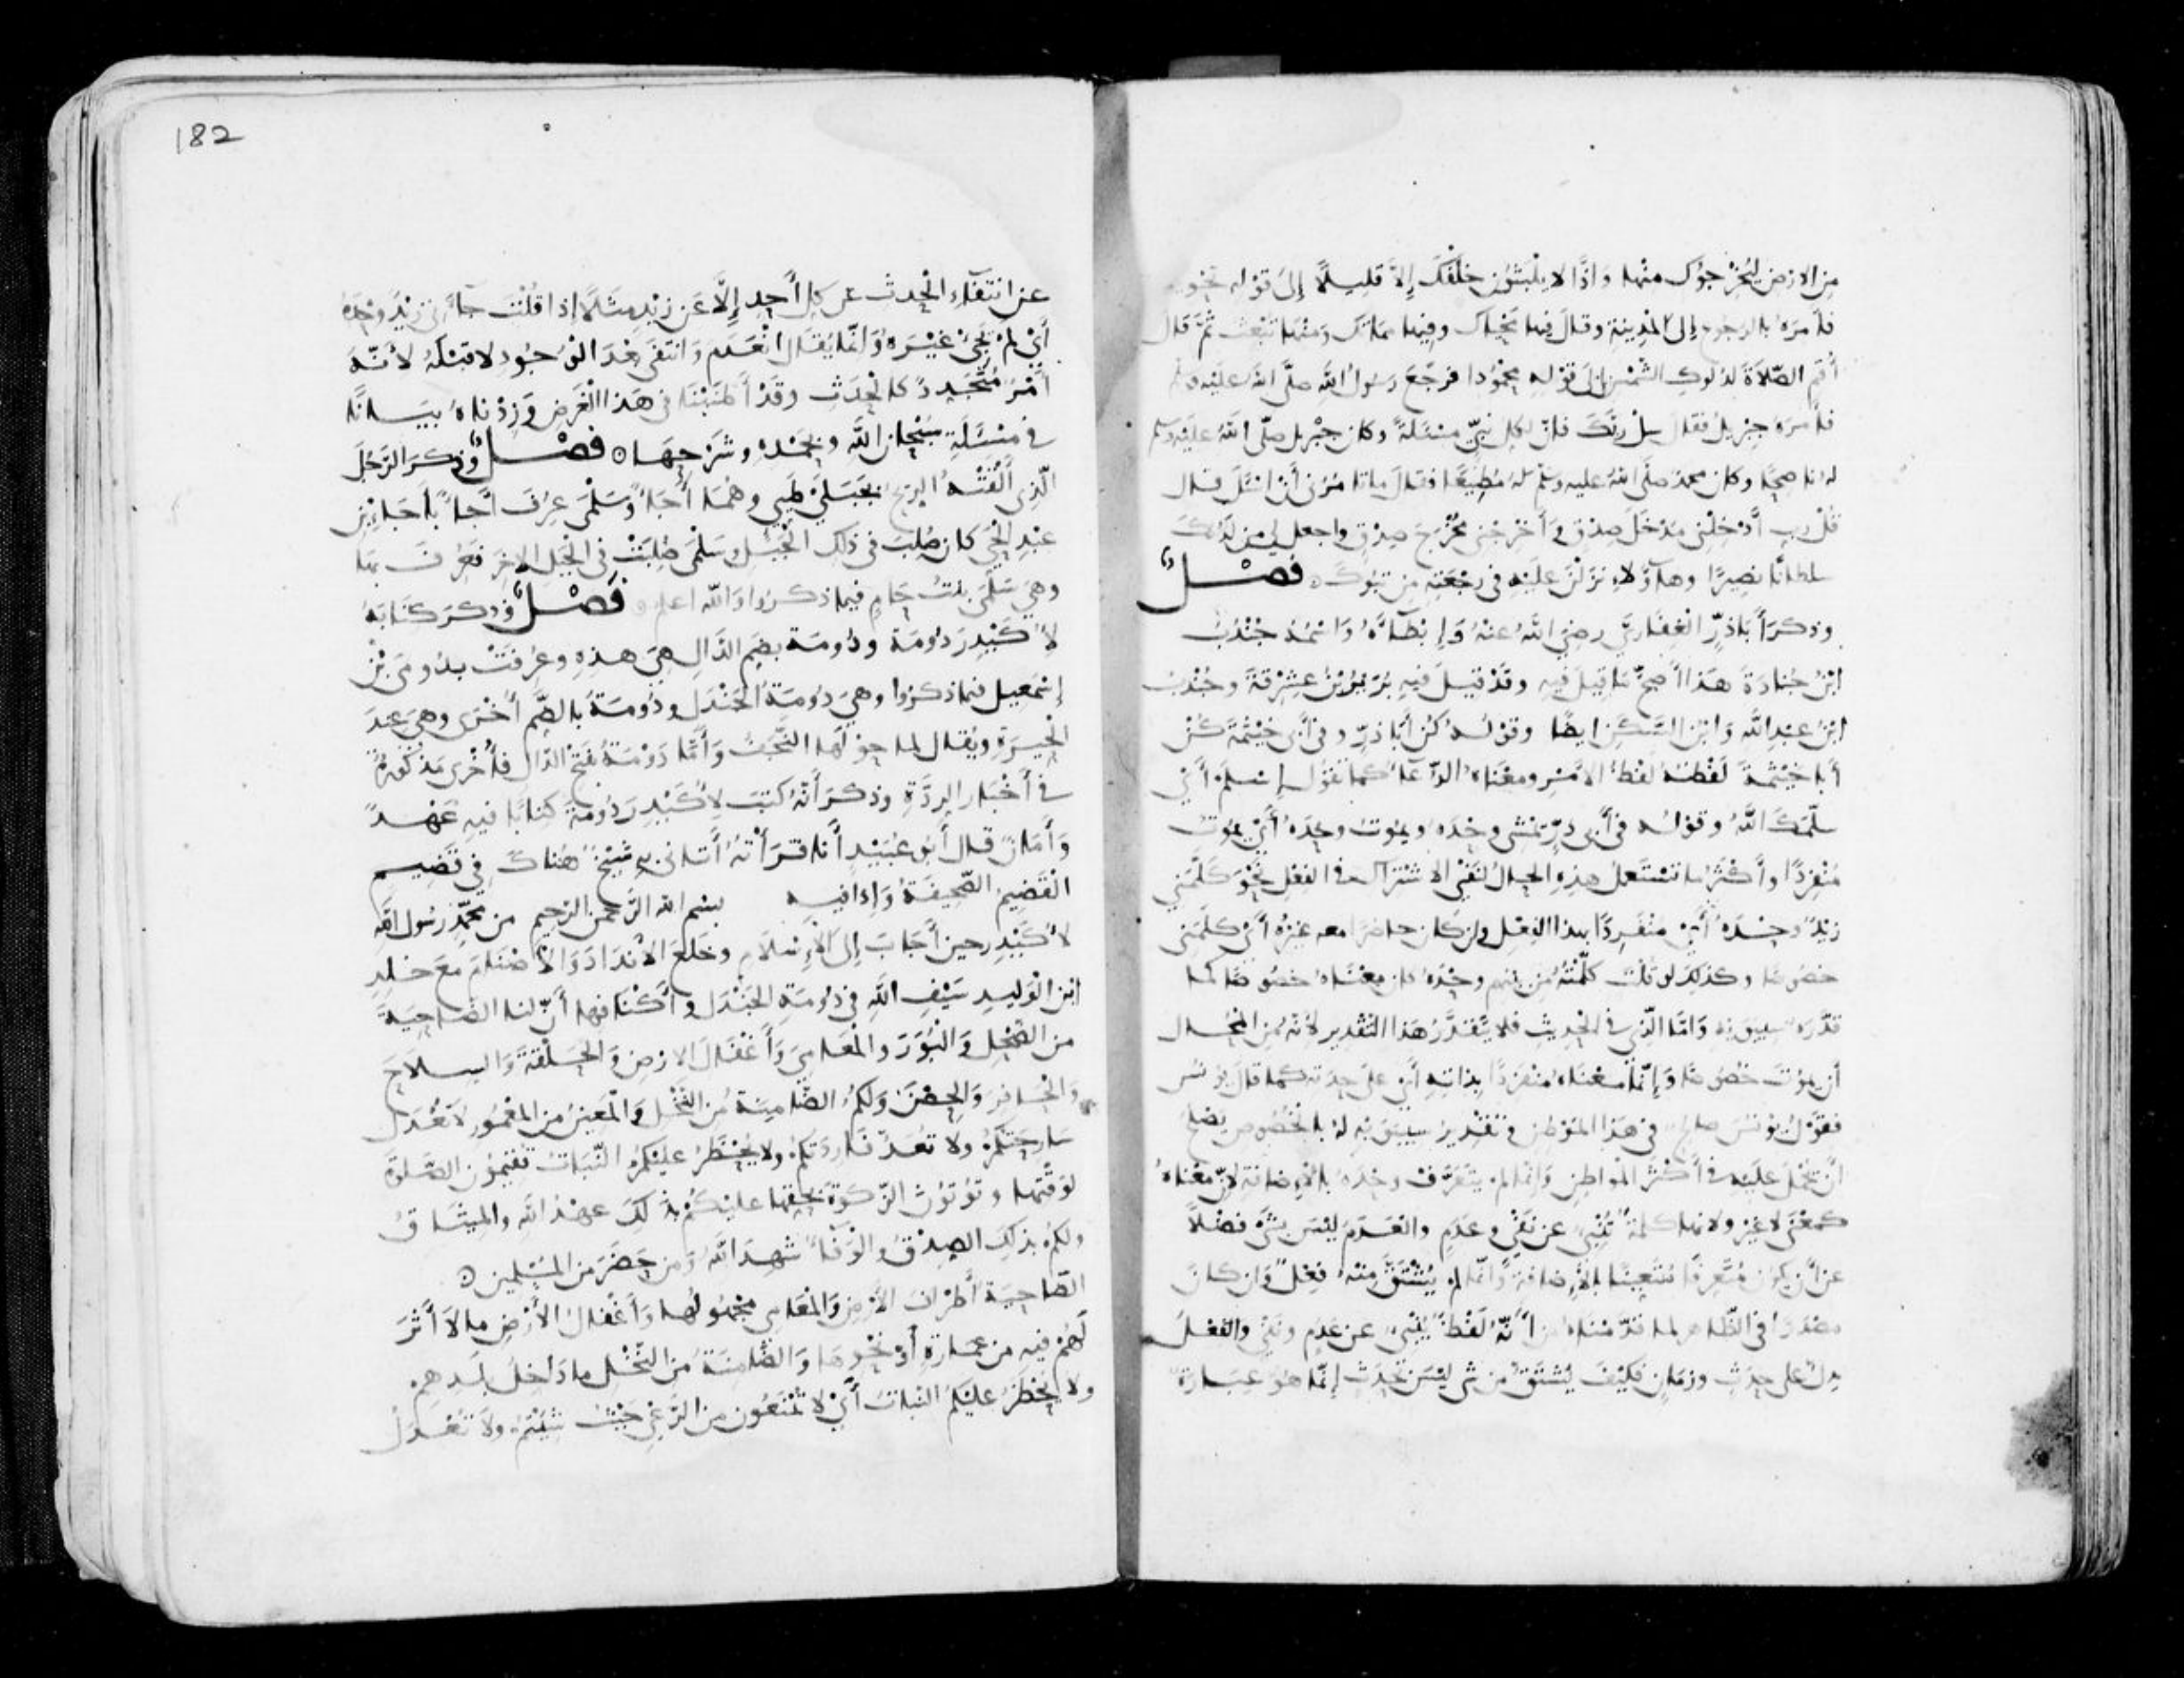 من الارض ليُخْرجوُك منها وَاِذًا لا يلْبَثوُن خلْفَكَ إلاَّ قليلًا إلىَ قوْله تحْويلا
فأمرَهُ بالرجوع إلىَ المْدِينَةِ وقالَ فيها محْياك وفيها مماتك وَمنْها تبْعَث ثُمَّ قالَ
أقِمِ الصّلاَةَ لدُلوُكِ الشّمْسِ إلىَ قوْله محْمُودا فرجَعَ رَسوُلُ اللهَ صلَّى اللهُ عليْه وسلم
فأمرَهُ جبْريلُ فقالَ سلْ ربَّكَ فإنّ لكِل نبيّ مسْئلَةً وكان جبْريل صلّى اللهُ عليْه وسلم
لهُ ناصحًا وكان محمدٌ صلَّى اللهُ عليه وسَلّمْ لهُ مُطِيعًا فقالَ ما تأمُرُني أَنْ أسْئلَ قال
قُلْ ربِ أَدْخِلْني مدْخَلَ صِدْقٍ وَأَخرِجْني مُخْرَجَ صِدْقٍ واجعل لي من لّدُنْكَ
سلطانًا نصِيرًا وهآؤُلاءِ نزَلْنَ عليْهِ في رجْعَتِهِ من تبُوكَ ۞ فصْلٌ
وذكرَ أَبَا ذرٍّ الغِفَاريَّ رضِيَ اللهُ عنْهُ وَإِبْطَاءَهُ وَاسْمُهُ جُنْدُبُ
ابْنُ جُنَادَةَ هذَا أَصحُّ مَا قِيلَ فيهِ وقدْ قيلَ فيهِ بُرَيرُ بْنُ عِشرِقةَ وجُنْدُبُ
ابْنُ عبْدِ اللهِ وَابْن السَّكَنِ ايضًا وقوْلهُ كُن أَبَا ذرٍّ وفي أَبي خيْثمَةَ كُنْ
أَبا خيْثمةَ لَفْظهُ لفْظُ الأمْرِ ومعْنَاهُ الدّعَاءُ كما تقوُل إسْلَمْ أَيْ
سلّمَكَ اللهُ وقوْلهُ في أَبي ذرٍّ يمْشي وحْدَهُ ويمُوتُ وحْدَهُ أَيْ يموُتُ
مُنْفرِدًا وأَكثَرُ ما تسْتَعملُ هذِهِ الحالُ لنَفْيِ الاِشْتراك في الفعْلِ نحْوَ كلَّمَني
زيْدٌ وحْدَهُ أَيْ منْفَردًا بهذا الفِعْلِ وإن كان حاضرًا معه غيْرُهُ أَيْ كلَّمَني
خصُوصًا وكذلِكَ لو قُلْتَ كلَّمْتُهُ من بيْنهِم وحْدَهُ كان معْنَاهُ خصُوصًا كما
قدَّرَهُ سيبَويْهِ وَأمّا الّذي في الْحدِيثِ فلا يتَقدَّرُ هَذا التّقْدير لأنّهُ من المُحال
أن يموُتَ خصُوصًا وَإنّما معْنَاهُ منْفردًا بذاتِهِ أَيْ على حِدَتِه كما قالَ يوُنُس
فقوْلُ يوُنُسَ صالحٌ في هَذَا الموْطِنِ وتقْدِيرُ سيبَويْهِ لهُ بالخْصُوصِ يصْلحُ
أنْ يحْمَلَ عليْهِ في أَكثَرِ المْواطِنِ وَإنّما لمْ يتعَرَّفْ وحْدَهُ بالإضافَةِ لأنّ معْناهُ
كمعْنَى لا غيْرُ ولأنها كلمَةٌ تُنْبِئُ عن نفْيٍ وعدَمٍ والعَدَمُ ليْسَ بشْيءٍ فضْلًا
عن أَن يكوُن مُتعَرِّفًا مُتعَيِّنًا بالإضافةِ وَإنّما لم يُشْتَقَّ منْهُ فِعْلٌ وَإن كانَ
مصْدَرًا في الظّاهرِ لما قدَّمْنَاهُ من أَنّهُ لفْظٌ يُنْبِئُ عن عدَمٍ ونفْيٍ والفعْلُ
يدلُّ على حدَثٍ وزمَانٍ فكيْفَ يُشتَقُّ من شيءٍ ليْسَ بحَدَثٍ إنّما هُوَ عِبَارَةٌ
182
عنِ انتفَاءِ الْحدثِ عن كلِ أَحدٍ إلَّا عَن زيْدٍ مثَلًا إذا قُلْتَ جآءَني زيْدٌ وحْدَهُ
أَيْ لمْ يجِئْ غيْرُهُ وَإنّما يُقالُ انْعَدَم وَانتفَى بعْدَ الوُجُودِ لا قبْلَهُ لأنّهُ
أَمْرٌ مُتجَددٌ كالحْدَثِ وقدْ أَطنَبْنَا في هَذا الغَرَضِ وَزدْناهُ بيَانًا
في مسْئلَةِ سُبْحانَ اللهِ وبحَمْدِهِ وشَرْحِهَا ۞ فصْلٌ وَذكرَ الرّجُلَ
الّذِي أَلْقَتْهُ الرّيحُ بجَبَليْ طيّي وهُمَا أَجَأٌ وَسَلْمَى عِرُفَ أَجَأٌ بأَجَأِ بْنِ
عبْدِ الْحيِّ كان صُلِبَ في ذلِكَ الْجبَلِ وسَلمَى صُلِبَتْ في الْجبَل الاخَرِ فعُرفَ بهَا
وهيَ سَلْمَى بنْتُ حَامٍ فيما ذكرُوا وَاللهُ اعلم ۞ فصْلٌ وَذكرَ كتَابَهُ
لأُكيْدِرِ دُومَةَ ودُومَة بضَمِ الدَّالِ هيَ هذِهِ وعُرفتْ بدُومَى بْنِ
إسْمَعِيلَ فيما ذكرُوا وهيَ دُومَةُ الجَنْدَل ودُومَةُ بالضَّمِ أُخْرَى وهيَ عِنْدَ
الحْيرَةِ ويُقالُ لما حوْلَها النّجَفُ وَأَمَّا دَوْمَةُ بفَتحِ الدّال فأُخْرَى مَذكُورَةٌ
في أَخْبَار الرّدَّةِ وذكرَ أَنّهُ كتَبَ لأُكيْدِرِ دُومَةَ كتَابًا فيهِ عَهْدٌ
وَأَمَانٌ قالَ أَبُو عُبَيْدٍ أَنا قرَأْتُهُ أَتاني بهِ شيْخٌ هُناكَ في قضِيمٍ
الْقضِيم الصّحِيفَةُ وَإِذا فيه بسْم الله الرّحمن الرّحِيم من محمّدٍ رسُول اللهِ
لأُكيْدِر حينَ أَجَابَ إلىَ الإسْلامِ وخلَعَ الأنْدَادَ وَالأصْنامَ معَ خالِدِ
ابْن الوَليدِ سيْفِ اللهِ في دُومَةِ الجَنْدَل وأَكْنَافِها أَنّ لنا الضّاحِيَةَ
من الضّحْلِ وَالْبُوَرَ والمْعَامِيَ وَأَغْفَالَ الارْضِ وَالحَلْقةَ وَالسلاحَ
وَالحافِرَ وَالحِصْنَ وَلكُم الضَّامِنَةُ من النّخْل وَالمَعِينُ من المَعْمُورِ لاتُعْدَلُ
سَارحَتُكُمْ ولا تُعَدُّ فاردَتُكم ولا يُحْظَرُ عليْكُم النّبَاتُ تُقِيمُونَ الصّلوةَ
لوَقْتِها وتُوتوُنَ الزَّكوةَ بحَقِها عليْكُمْ بذَلكَ عهْدُ اللهِ والمِيثَاقُ
ولكُم بذَلِكَ الصّدْقُ والوَفاءُ شهِدَ اللهُ ومَن حَضَرَ من المُسْلِمين ۞
الضّاحِيَةُ أَطْرافُ الأرْضِ وَالمْعَامِي مجْهُولُها وَأَغْفالُ الأرْضِ ما لا أَثَرَ
لَهُمْ فيهِ من عِمَارَةٍ أَوْ نحْوِهَا وَالضّامِنَةُ من النّخْلِ ما دَاخِلَ بلَدِهِم
ولا يُحْظَرُ عليْكُم النّباتُ أَيْ لا تُمْنَعُون من الرَّعْيِ حيْثُ شِئْتُم ولا تُعْدَلُ